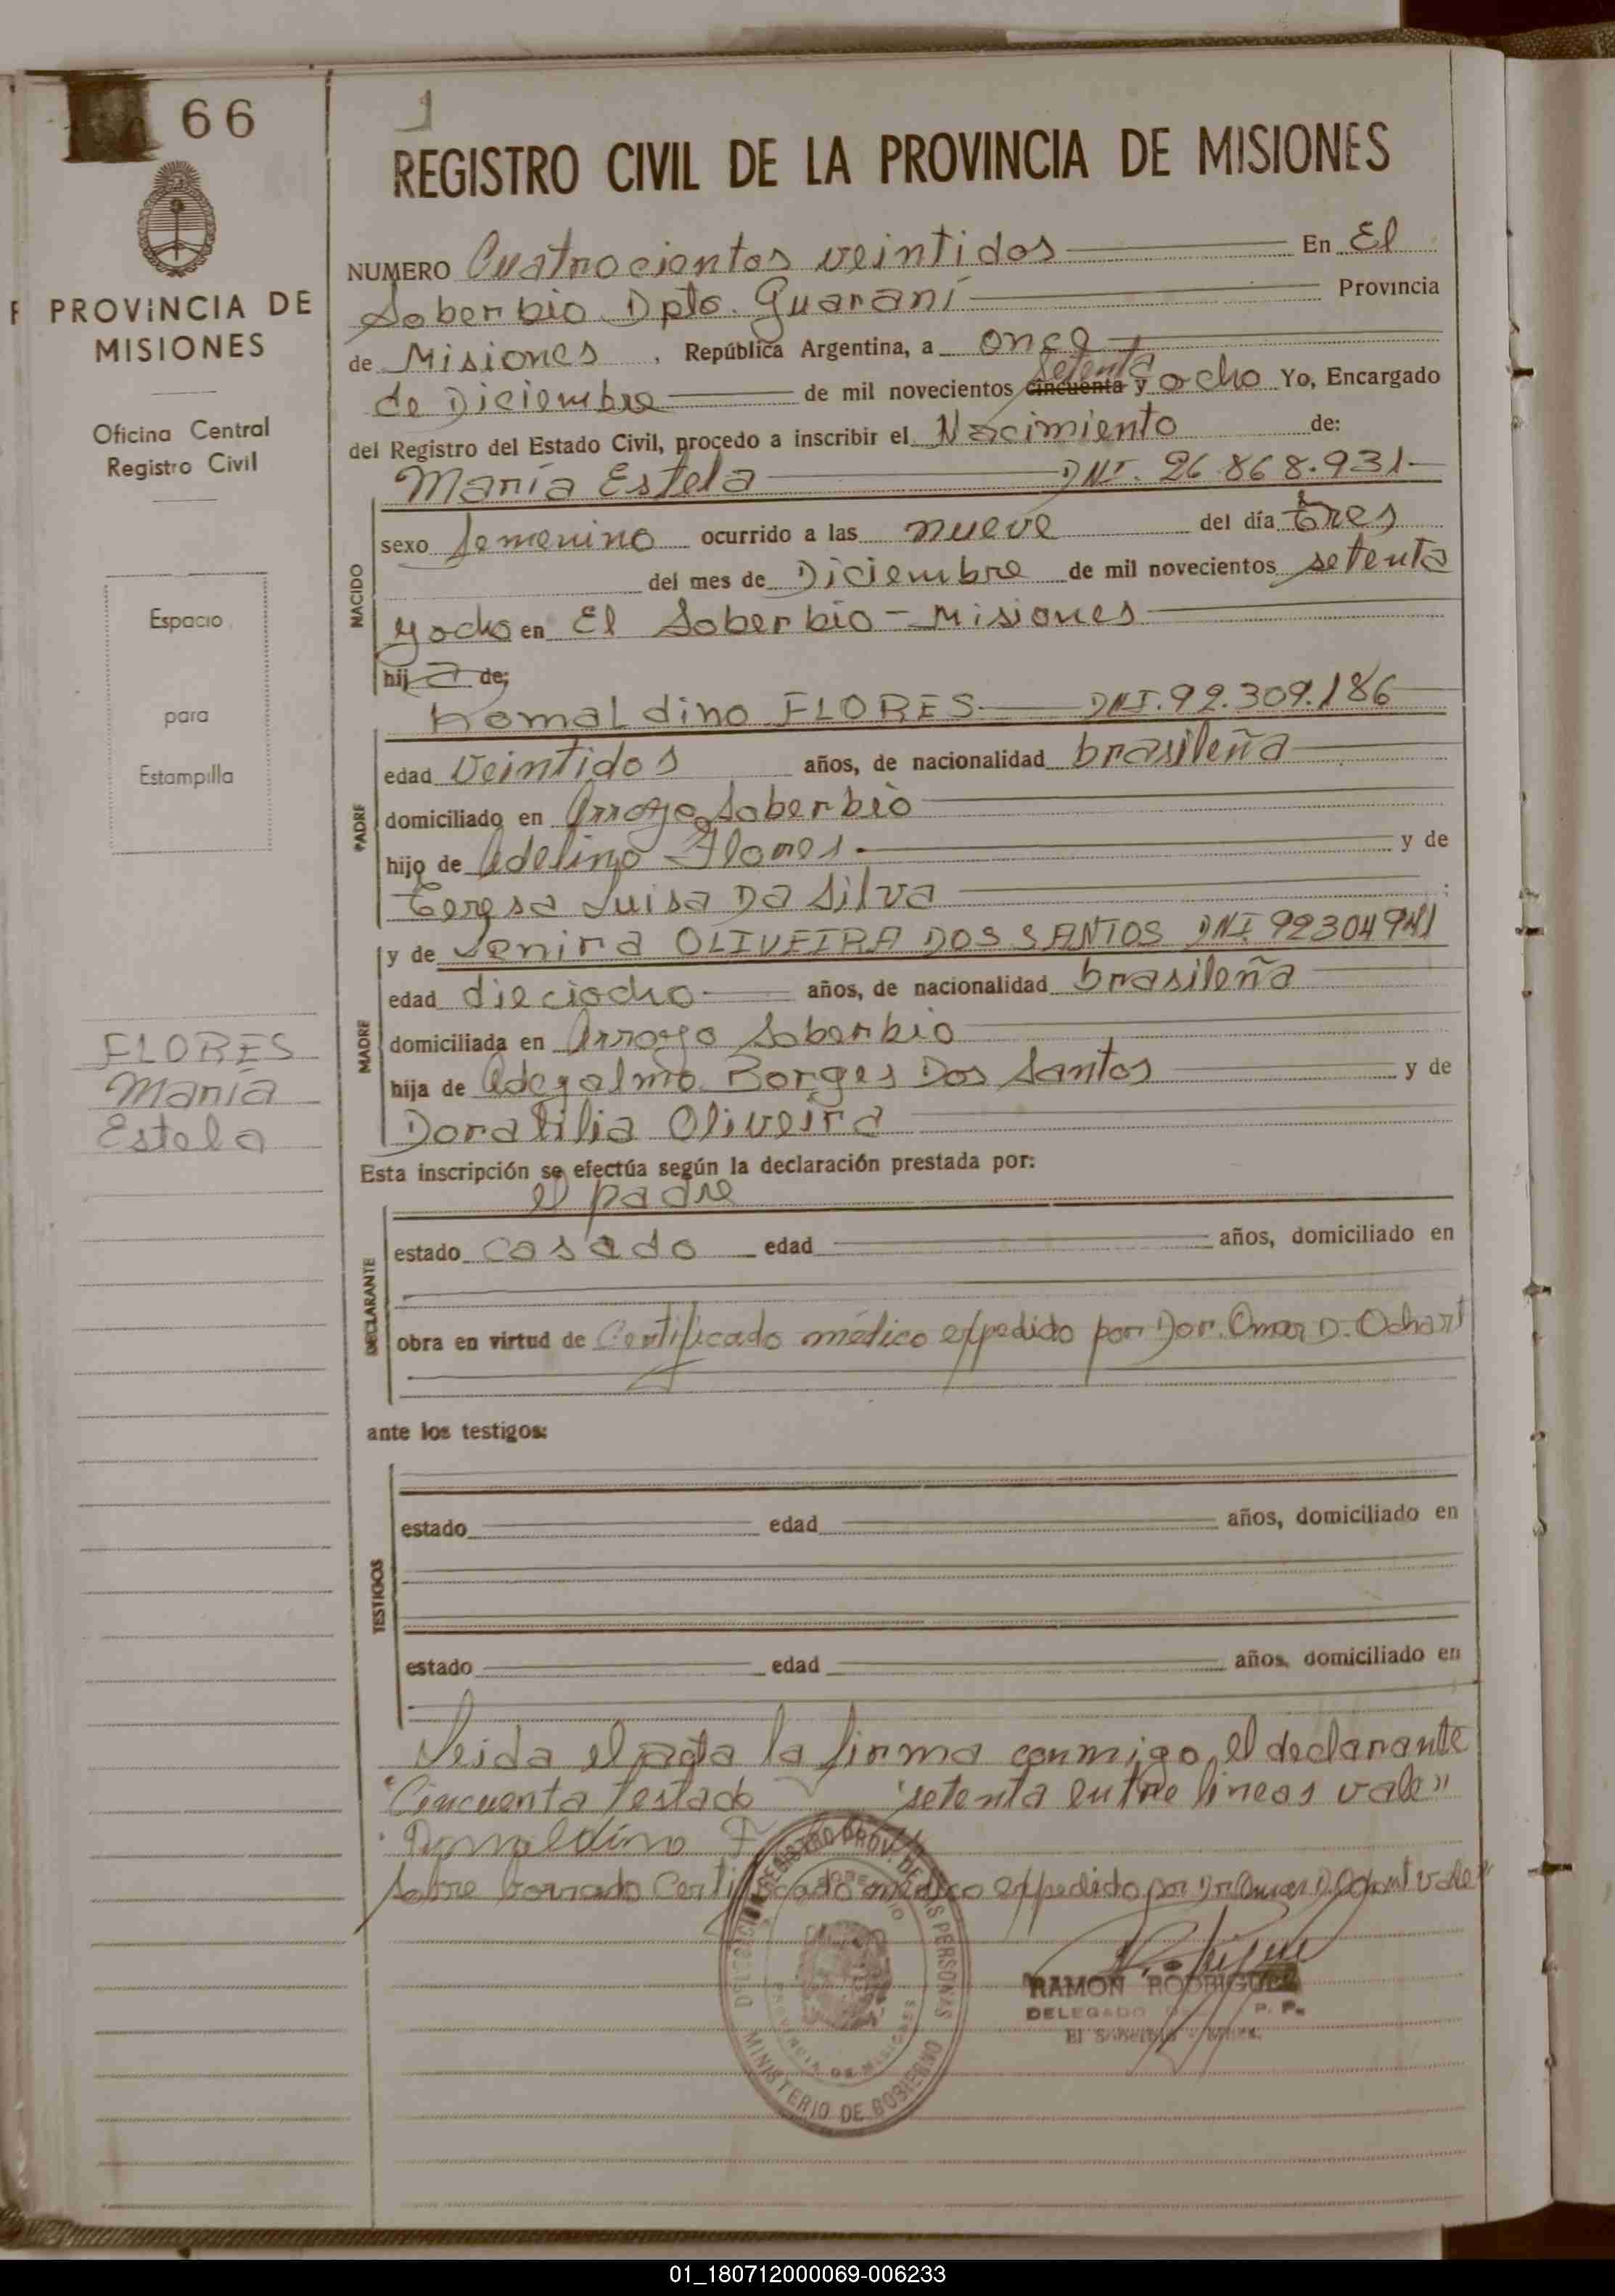 66
REGISTRO CIVIL DE LA PROVINCIA DE MISIONES
PROVINCIA DE
MISIONES
Oficina Central
Registro Civil
Espacio
para
Estampilla
FLORES
María
Estela
NUMERO Cuatrocientos veintidos En El
Soberbio Dpto. Guaraní Provincia
de Misiones, República Argentina, a once
setenta
de Diciembre de mil novecientos cincuenta y ocho Yo, Encargado
del Registro del Estado Civil, procedo a inscribir el Nacimiento de:
María Estela DNI. 26.868.931
NACIDO
sexo femenino ocurrido a las nueve del día tres
del mes de Diciembre de mil novecientos setenta
y ocho en El Soberbio - Misiones
hija de:
PADRE
Romaldino FLORES DNI. 92.309.186
edad veintidos años, de nacionalidad brasileña
domiciliado en Arroyo Soberbio
hijo de Adelino Flores y de
Teresa Luisa Da Silva
MADRE
y de Lenira OLIVEIRA DOS SANTOS DNI 92304941
edad dieciocho años, de nacionalidad brasileña
domiciliada en Arroyo Soberbio
hija de Adegalmo Borges Dos Santos y de
Doralilia Oliveira
Esta inscripción se efectúa según la declaración prestada por:
el padre
DECLARANTE
estado casado edad años, domiciliado en
obra en virtud de Certificado médico expedido por Dor. Omar D. Ochart
ante los testigos:
TESTIGOS
estado edad años, domiciliado en
estado edad años, domiciliado en
Leida el acta la firma conmigo, el declarante
"Cincuenta testado "setenta entre lineas vale"
Romaldino F
Sobre borrado Certificado médico expedido por Dr Omar D. Ochart vale"
DELEGACION REGISTRO PROV. DE LAS PERSONAS
PROVINCIA DE MISIONES
MINISTERIO DE GOBIERNO
RAMON RODRIGUEZ
DELEGADO P. P.
01_180712000069-006233